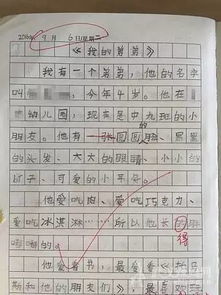 2016年9月6日星期二
《我的弟弟》
我有一个弟弟,他的名字
叫 今年4岁。他在
幼儿园,现在是中九班的小
朋友。他有一张圆圆的脸、黑黑
的头发、大大的眼睛、小小的
可爱的小平
他爱吃肉、爱吃巧克力、
爱吃冰淇淋……所以他长得胖
嘟嘟的。
他爱看书,最爱看《托马
斯和他的朋友们》,最喜欢